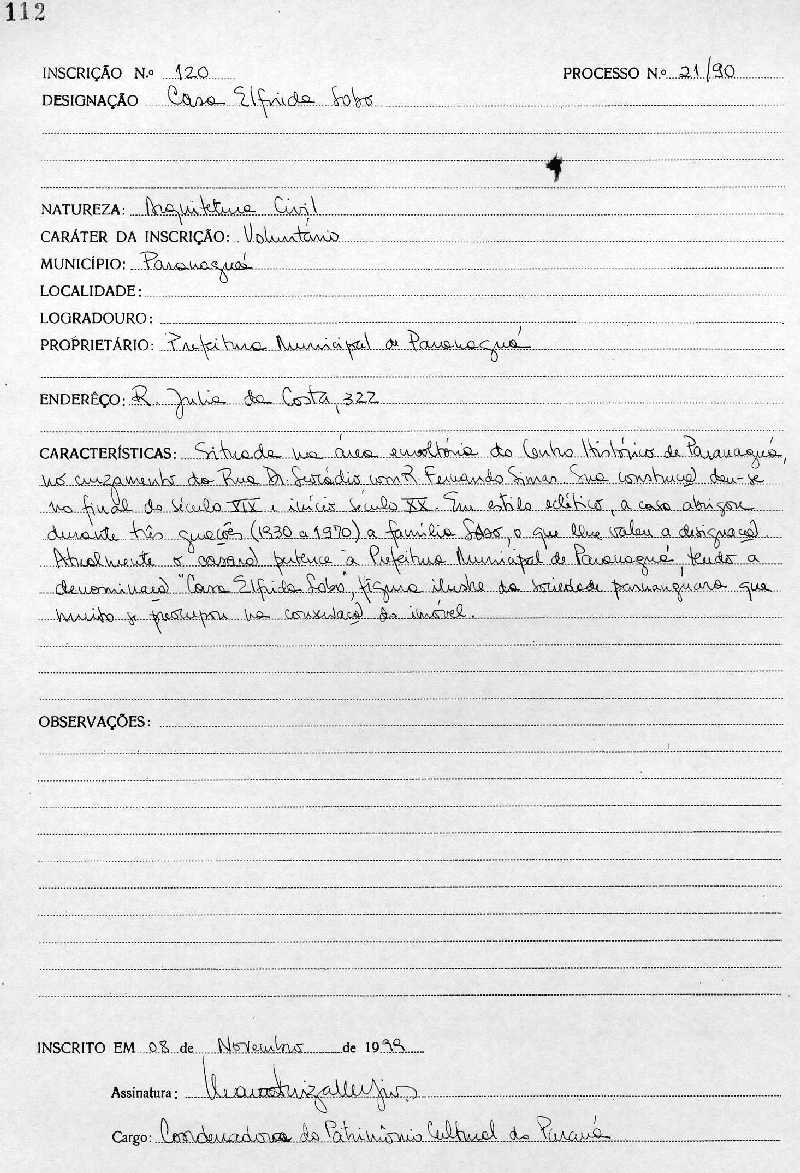 112
INSCRIÇÃO N.º 120 PROCESSO N.º 21/90
DESIGNAÇÃO Casa Elfrida Lobo
NATUREZA: Arquitetura Civil
CARÁTER DA INSCRIÇÃO: Voluntário
MUNICÍPIO: Paranaguá
LOCALIDADE:
LOGRADOURO:
PROPRIETÁRIO: Prefeitura Municipal de Paranaguá
ENDERÊÇO: R. Julia da Costa, 322
CARACTERÍSTICAS: Situada na área envoltória do Centro Histórico de Paranaguá,
no cruzamento da Rua Dr. Leocádio com R. Fernando Simas. Sua construção deu-se
no final do século XIX e início século XX. Em estilo eclético, a casa abrigou
durante três gerações (1930 a 1970) a família Lobo, o que lhe valeu a designação.
Atualmente o casarão pertence à Prefeitura Municipal de Paranaguá, tendo a
denominação "Casa Elfrida Lobo", figura ilustre da sociedade parnanguara que
muito se preocupou na conservação do imóvel.
OBSERVAÇÕES:
INSCRITO EM 08 de Novembro de 1999
Assinatura:
Cargo: Coordenadora do Patrimônio Cultural do Paraná